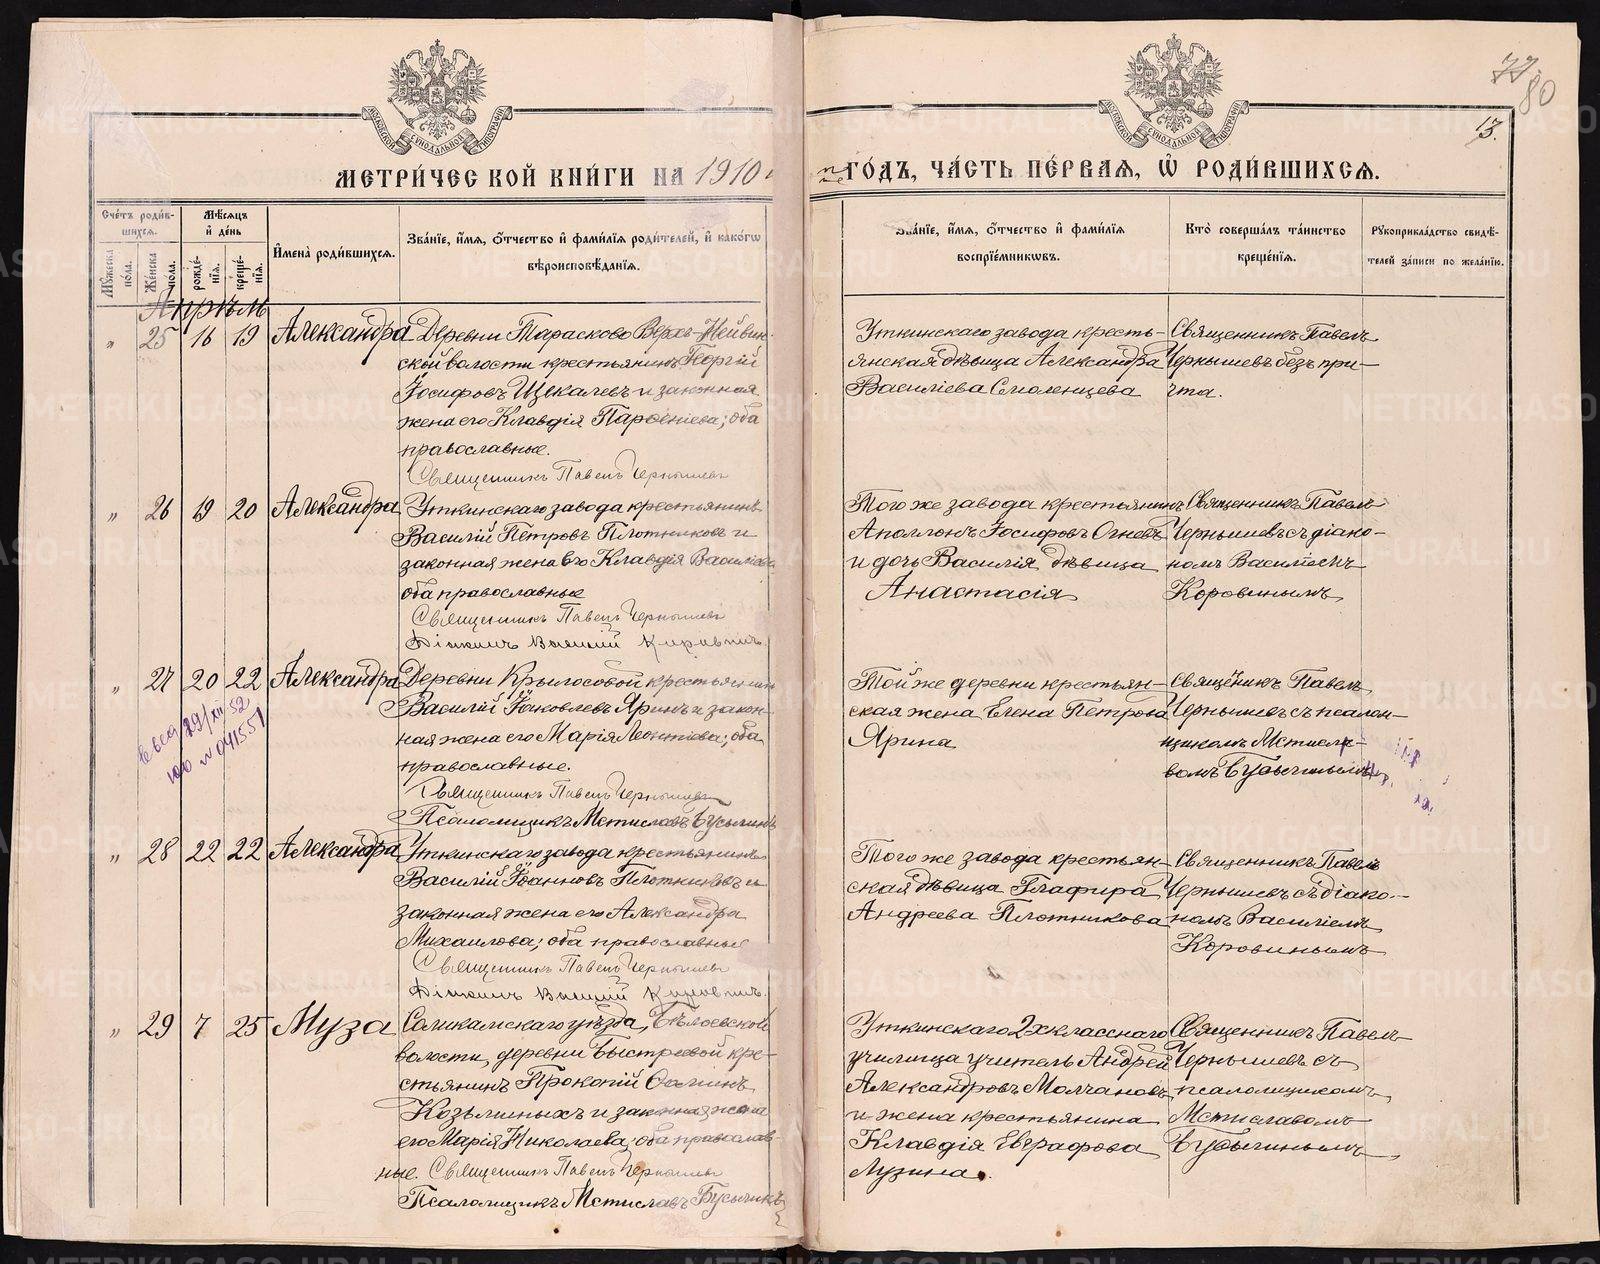 77.
80
13.
МОСКОВСКОЙ СѴНОДАЛЬНОЙ ТИПОГРАФІИ
МОСКОВСКОЙ СѴНОДАЛЬНОЙ ТИПОГРАФІИ
МЕТРИ́ЧЕСКОЙ КНИ́ГИ НА 1910
ГО́ДЪ, ЧА́СТЬ ПЕ́РВАЯ, Ѽ РОДИ́ВШИХСЯ.
Сче́тъ роди́в-
шихся.
Мꙋ́жеска по́ла.
Же́нска по́ла.
Мѣ́сяцъ
и҆ де́нь
рожде́-
нїя.
креще́-
нїя.
И҆мена̀ роди́вшихся.
Зва́нїе, и҆́мя, ѻ҆́тчество и҆ фами́лїя роди́телей, и҆ како́гѡ
вѣроисповѣ́данїя.
Зва́нїе, и҆́мя, ѻ҆́тчество и҆ фами́лїя
воспрїе́мникѡвъ.
Кто̀ соверша́лъ та́инство
креще́нїя.
Рꙋкоприкла́дство свидѣ́-
телей за́писи по жела́нїю.
Апрѣль
„ 25 16 19 Александра
Деревни Тарасково Верхъ-Нейвин-
ской волости крестьянинъ Георгій
Іосифовъ Щекалевъ и законная
жена его Клавдія Парѳеніева; оба
православные.
Священникъ Павелъ Чернышевъ
Уткинскаго завода кресть-
янская дѣвица Александра
Василіева Смоленцева
Священникъ Павелъ
Чернышевъ безъ при-
чта.
„ 26 19 20 Александра
Уткинскаго завода крестьянинъ
Василій Петровъ Плотниковъ и
законная жена его Клавдія Василіева
оба православные
Священникъ Павелъ Чернышевъ
Діаконъ Василій Коровинъ.
Того же завода крестьянинъ
Аполлонъ Іосифовъ Огневъ
и дочь Василія дѣвица
Анастасія
Священникъ Павелъ
Чернышевъ съ діако-
номъ Василіемъ
Коровинымъ
„ 27 20 22 Александра
Деревни Крылосовой крестьянинъ
Василій Іаковлевъ Яринъ и закон-
ная жена его Марія Леонтіева; оба
православные.
Священникъ Павелъ Чернышевъ
Псаломщикъ Мстиславъ Бусыгинъ
29/XII 52
100 № 041551
Той же деревни крестьян-
ская жена Елена Петрова
Ярина
Священникъ Павелъ
Чернышевъ съ псалом-
щикомъ Мстисла-
вомъ Бусыгинымъ
„ 28 22 22 Александра
Уткинскаго завода крестьянинъ
Василій Іоанновъ Плотниковъ и
законная жена его Александра
Михаилова; оба православные
Священникъ Павелъ Чернышевъ
Діаконъ Василій Коровинъ.
Того же завода крестьян-
ская дѣвица Глафира
Андреева Плотникова
Священникъ Павелъ
Чернышевъ съ діако-
номъ Василіемъ
Коровинымъ
„ 29 7 25 Муза
Соликамскаго уѣзда, Бѣлоевской
волости, деревни Быстреевой кре-
стьянинъ Прокопій
Козьминыхъ и законная жена
его Марія Николаева; оба православ-
ные. Священникъ Павелъ Чернышевъ
Псаломщикъ Мстиславъ Бусыгинъ
Уткинскаго 2хкласснаго
училища учитель Андрей
Александровъ Молчановъ
и жена крестьянина
Клавдія Евграфова
Лузина.
Священникъ Павелъ
Чернышевъ съ
псаломщикомъ
Мстиславомъ
Бусыгинымъ
METRIKI.GASO-URAL.RU